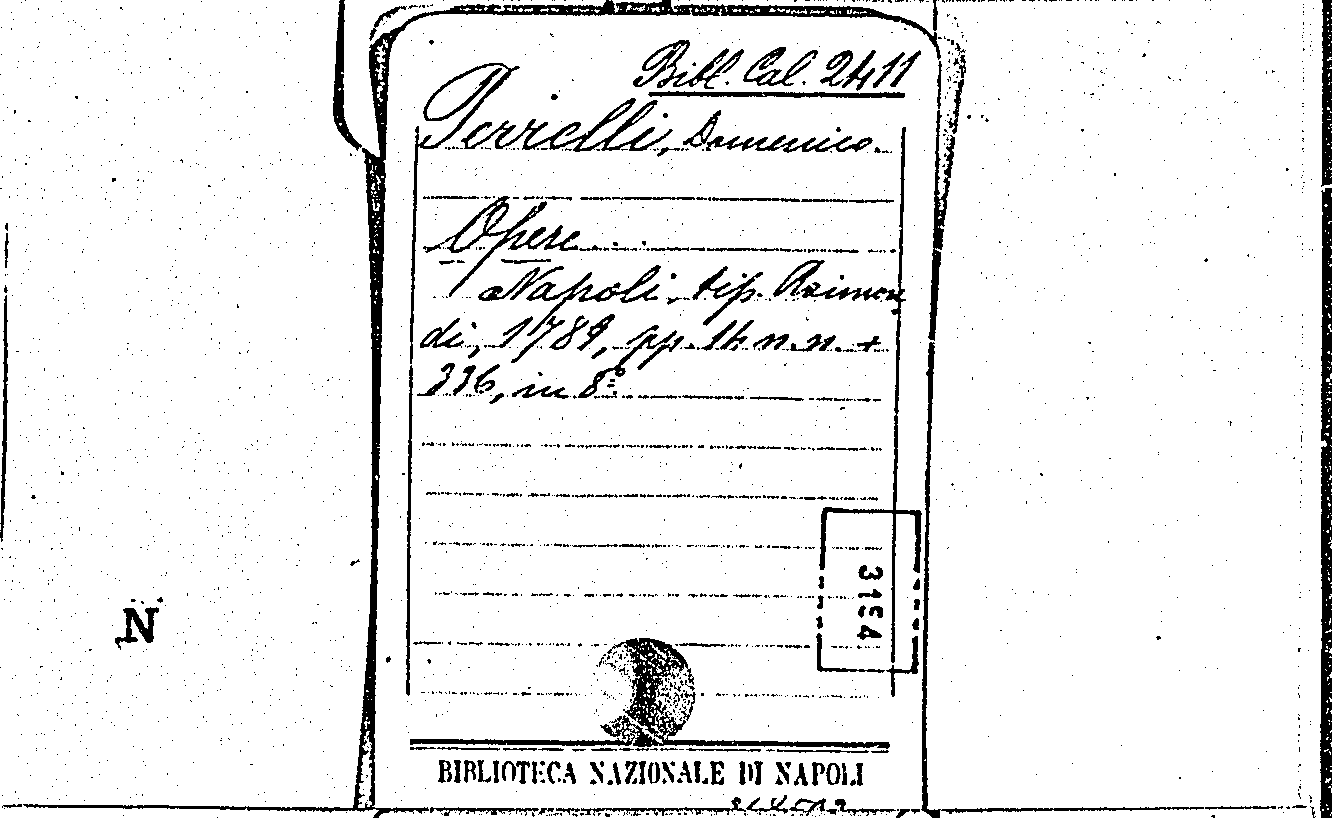 Bibl. Cal. 2411
Terrelli, Domenico.
Opere...
Napoli, tip. Raimon
di, 1789, pp. 14 n.n. +
336, in 8º.
3154
N
BIBLIOTECA NAZIONALE DI NAPOLI